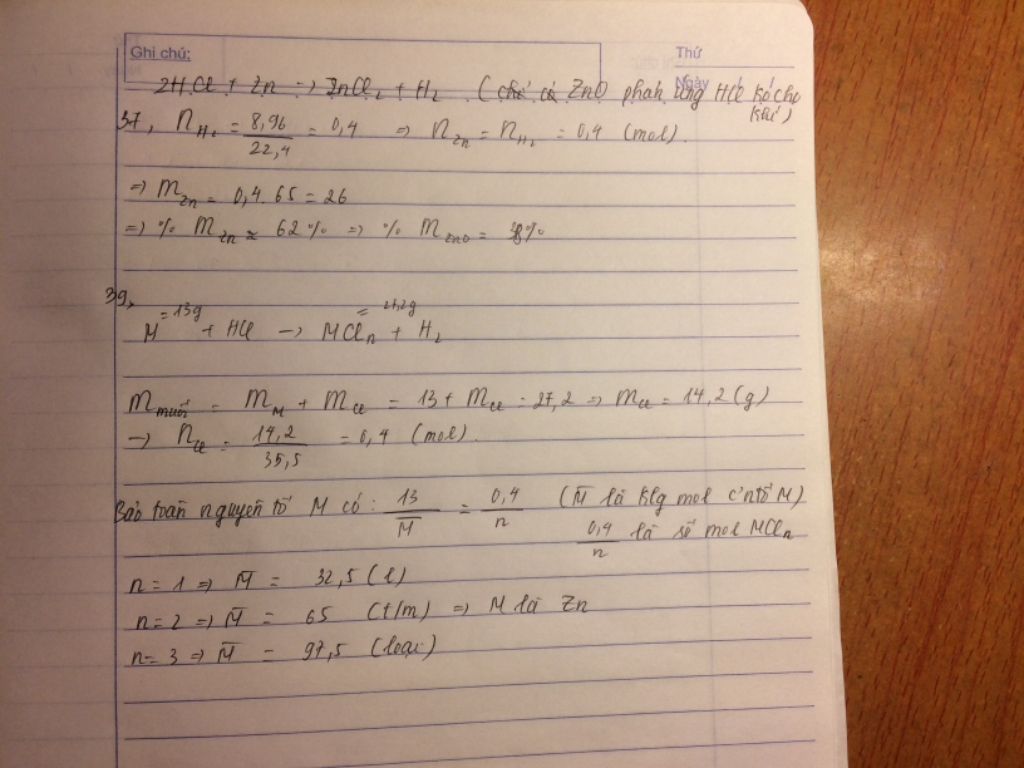 Ghi chú:
Thứ
Ngày
2HCl + Zn → ZnCl₂ + H₂ (chú ý ZnO phản ứng HCl ko cho
khí)
37, nH₂ = 8,96/22,4 = 0,4 ⇒ nZn = nH₂ = 0,4 (mol).
⇒ mZn = 0,4.65 = 26
⇒ % mZn ≈ 62% ⇒ % mZnO = 38%
39,
= 13g = 27,2g
M + HCl → MCln + H₂
mmuối = mM + mCl = 13 + mCl = 27,2 ⇒ mCl = 14,2 (g)
→ nCl = 14,2/35,5 = 0,4 (mol).
Bảo toàn nguyên tố M có: 13/M̅ = 0,4/n (M̅ là klg mol c' ntố M)
0,4/n là số mol MCln
n = 1 ⇒ M̅ = 32,5 (l)
n = 2 ⇒ M̅ = 65 (t/m) ⇒ M là Zn
n = 3 ⇒ M̅ = 97,5 (loại)